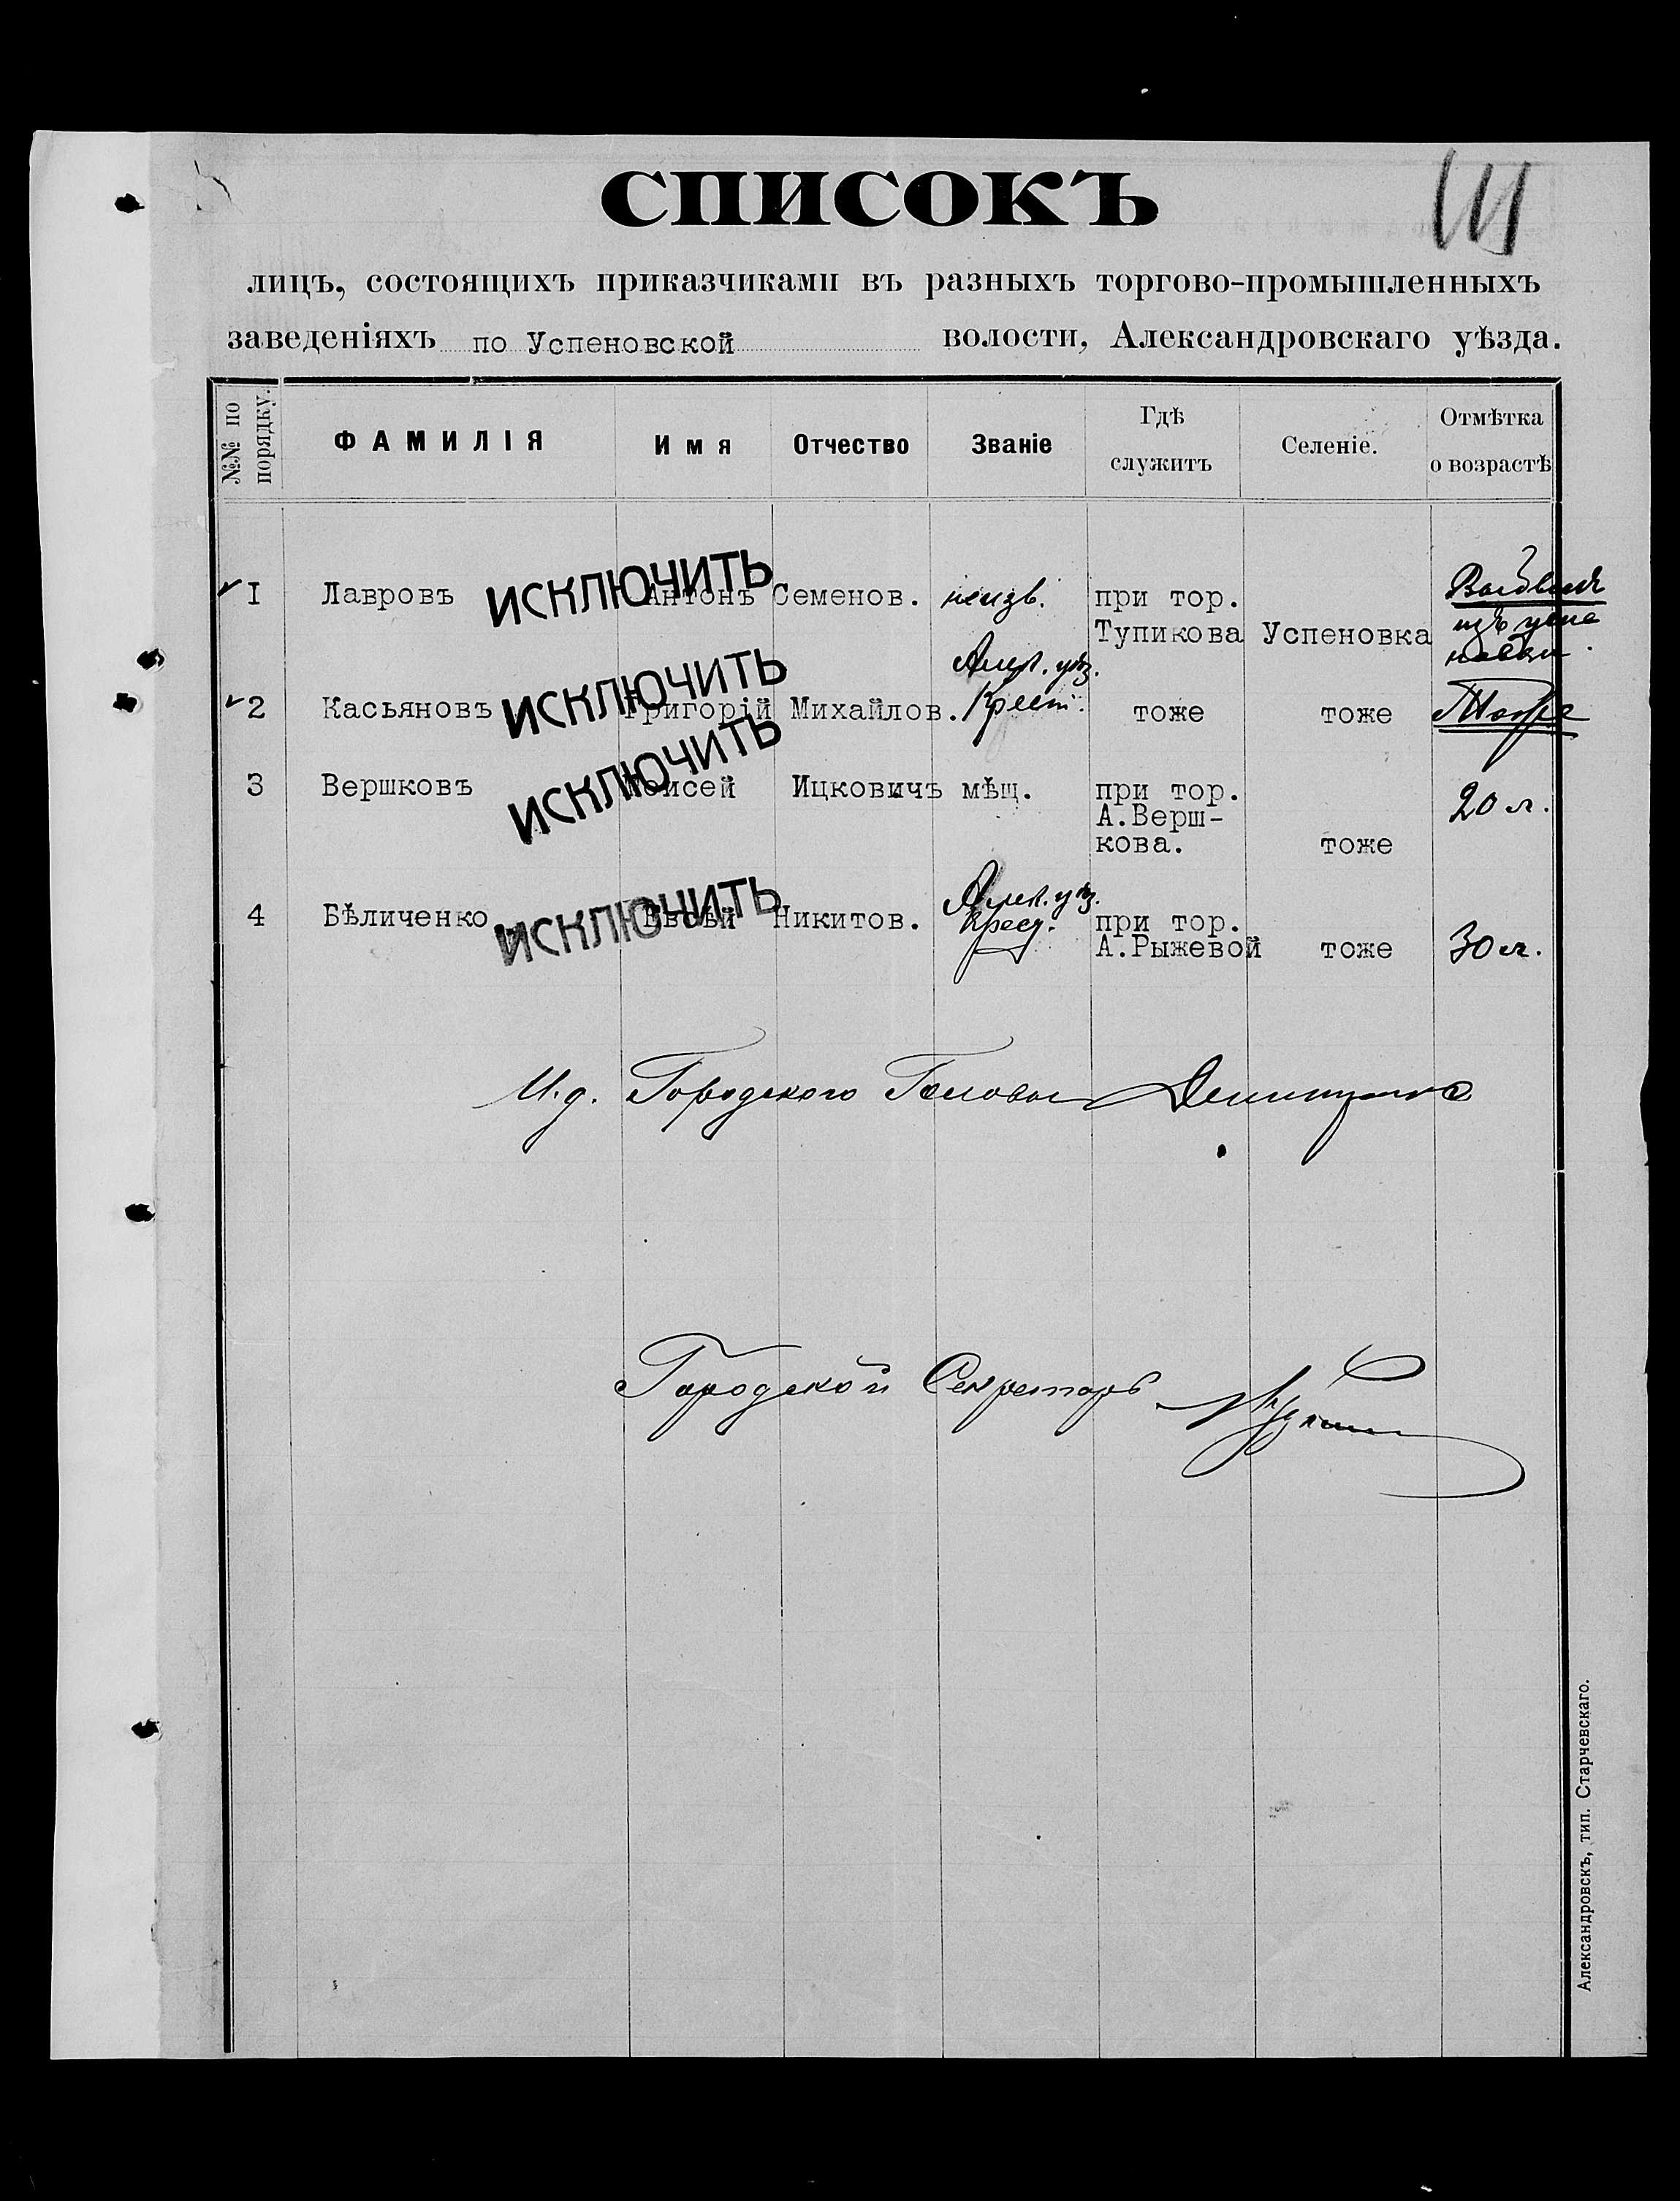 СПИСОКЪ
лицъ, состоящихъ приказчиками въ разныхъ торгово-промышленныхъ
заведеніяхъ по Успеновской волости, Александровскаго уѣзда.
№№ по порядку. ФАМИЛІЯ Имя Отчество Званіе Гдѣ служитъ Селеніе. Отмѣтка о возрастѣ
I Лавровъ ИСКЛЮЧИТЬ Антонъ Семенов. неизв. при тор.
Тупикова Успеновка
Алек. уѣз.
2 Касьяновъ ИСКЛЮЧИТЬ Григорій Михайлов. Крест. тоже тоже
3 Вершковъ ИСКЛЮЧИТЬ Моисей Ицковичъ мѣщ. при тор. 20 л.
А.Верш-
кова. тоже
Алек. уѣз.
4 Бѣличенко ИСКЛЮЧИТЬ Евсѣй Никитов. Крест. при тор.
А.Рыжевой тоже 30 л.
И.д. Городского Головы
Городской Секретарь
Александровскъ, тип. Старчевскаго.